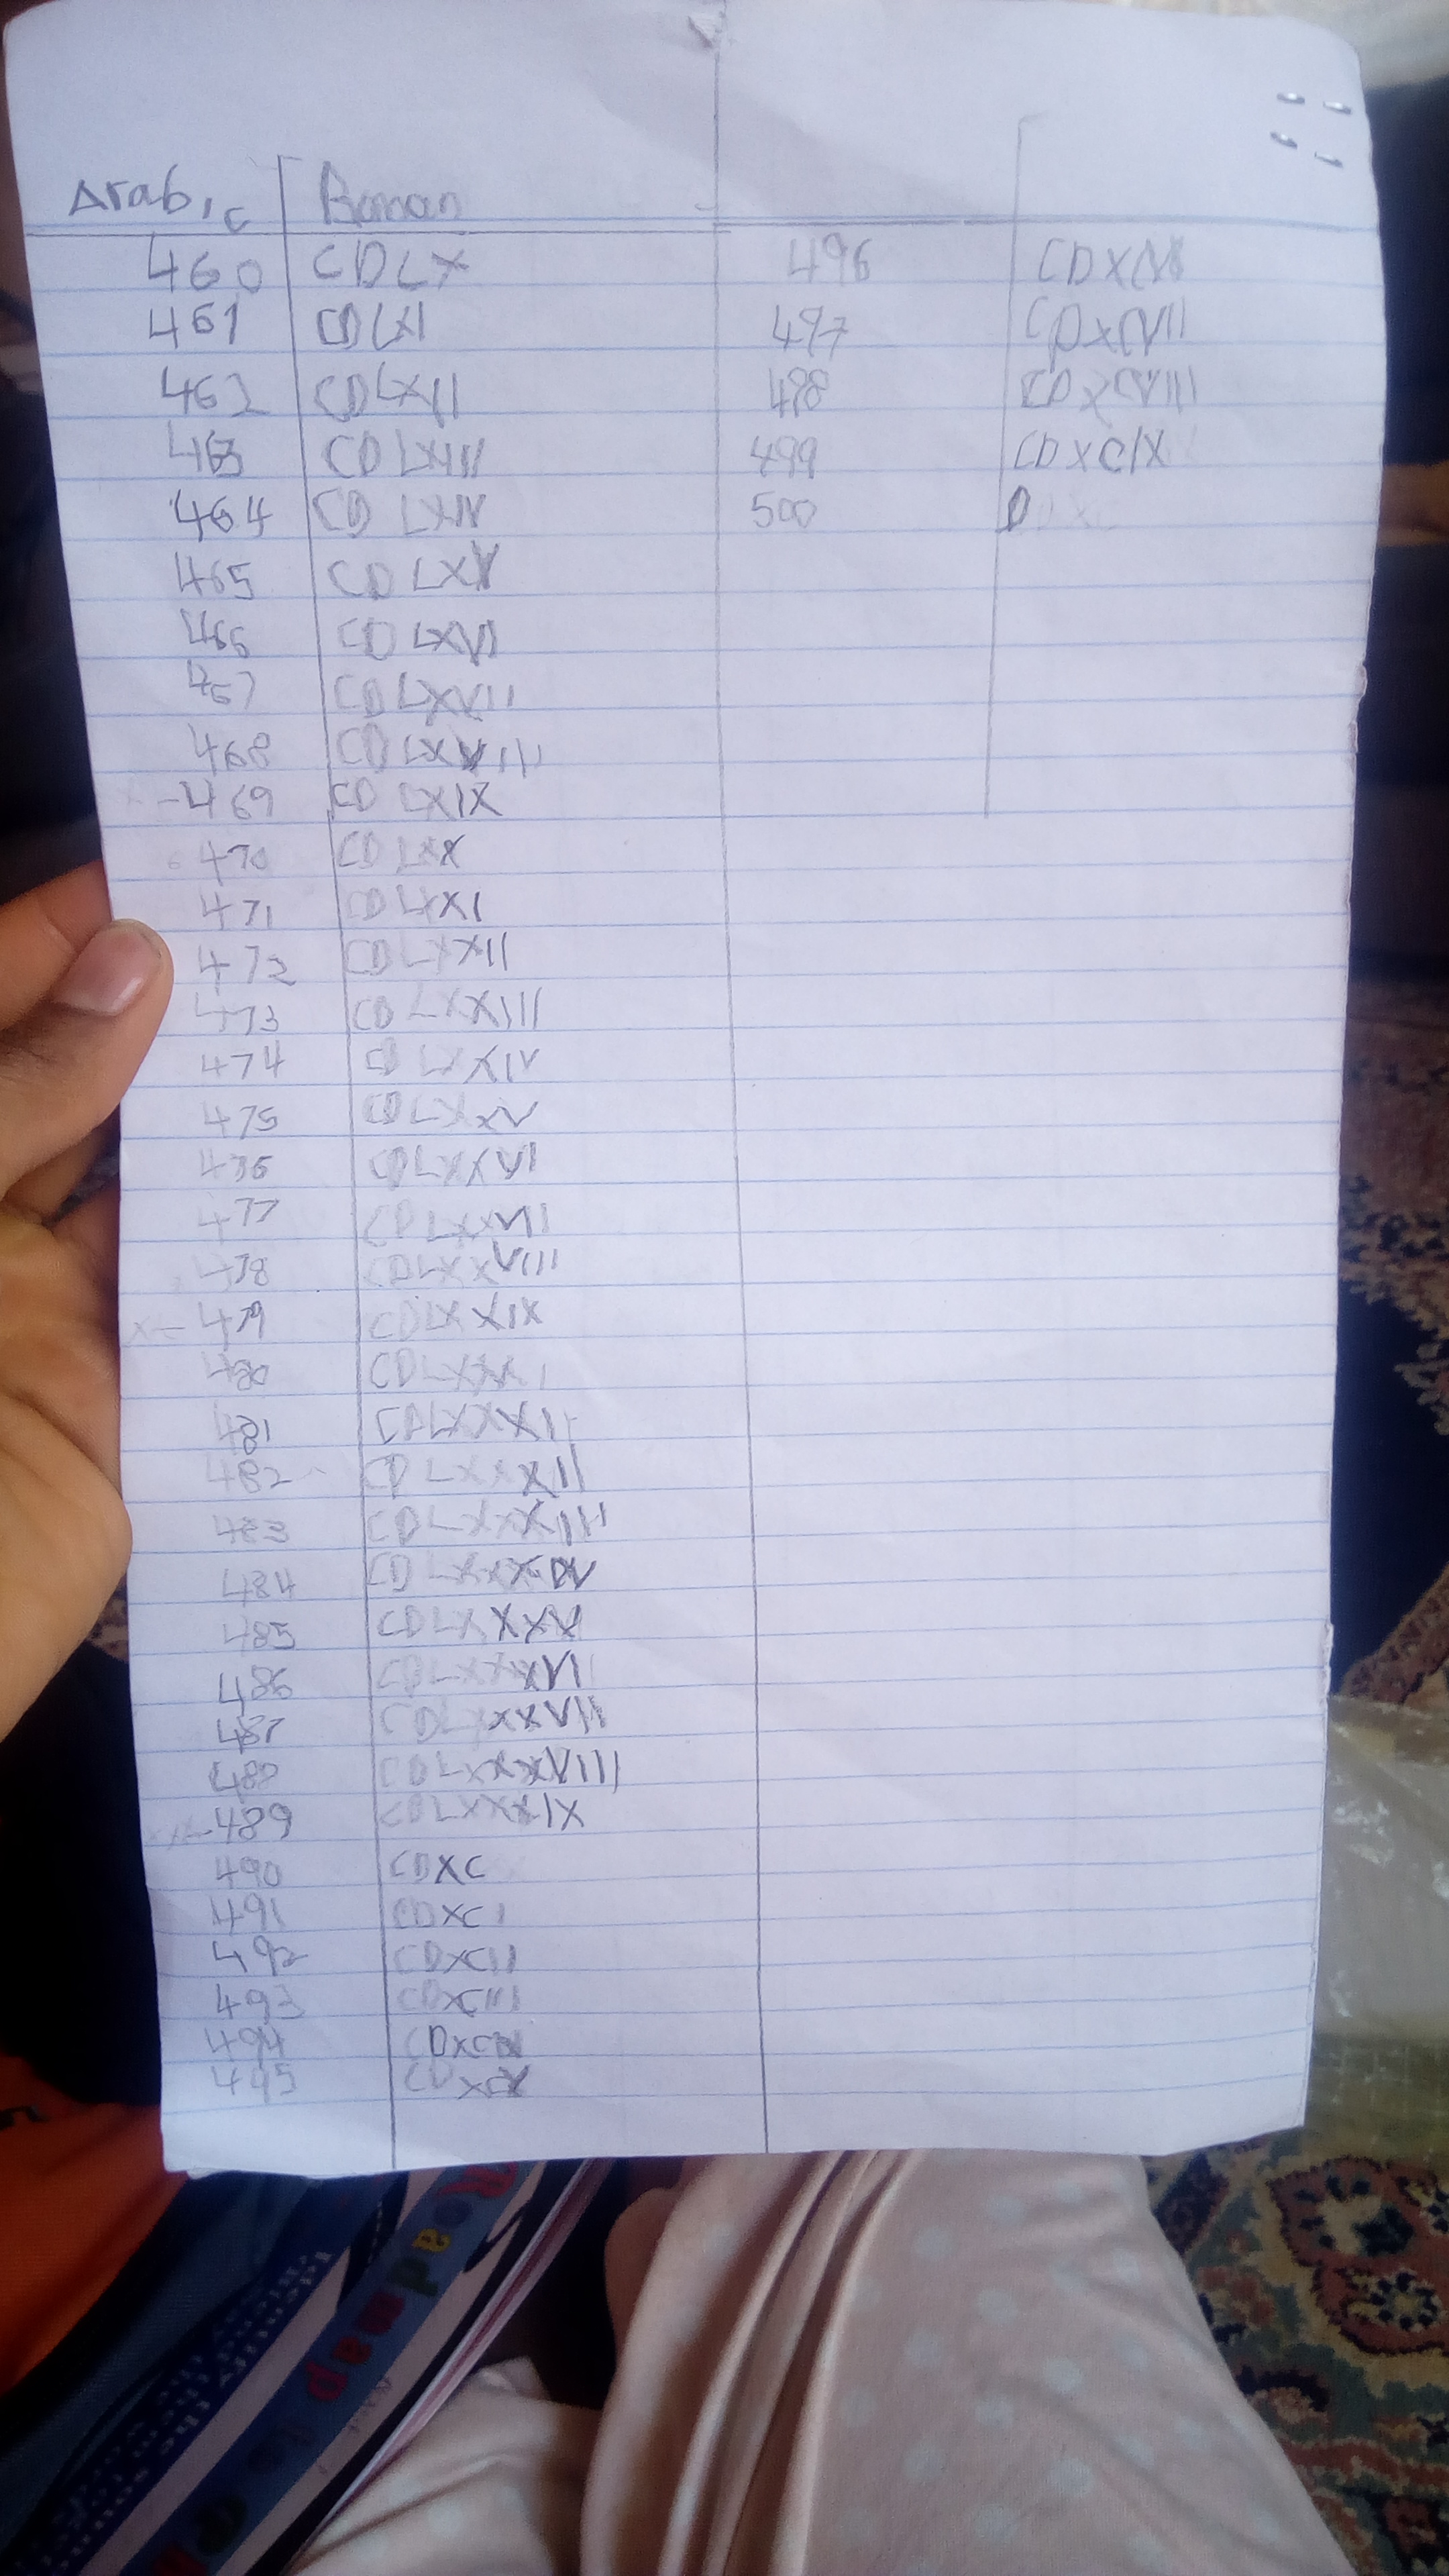 Arabic Roman
460 CDLX
461 CDLXI
462 CDLXII
463 CDLXIII
464 CDLXIV
465 CDLXV
466 CDLXVI
467 CDLXVII
468 CDLXVIII
469 CDLXIX
470 CDLXX
471 CDLXXI
472 CDLXXII
473 CDLXXIII
474 CDLXXIV
475 CDLXXV
476 CDLXXVI
477 CDLXXVII
478 CDLXXVIII
479 CDLXXIX
480 CDLXXX
481 CDLXXXI
482 CDLXXXII
483 CDLXXXIII
484 CDLXXXIV
485 CDLXXXV
486 CDLXXXVI
487 CDLXXXVII
488 CDLXXXVIII
489 CDLXXXIX
490 CDXC
491 CDXCI
492 CDXCII
493 CDXCIII
494 CDXCIV
495 CDXCV
496 CDXCVI
497 CDXCVII
498 CDXCVIII
499 CDXCIX
500 D
Roadmap to